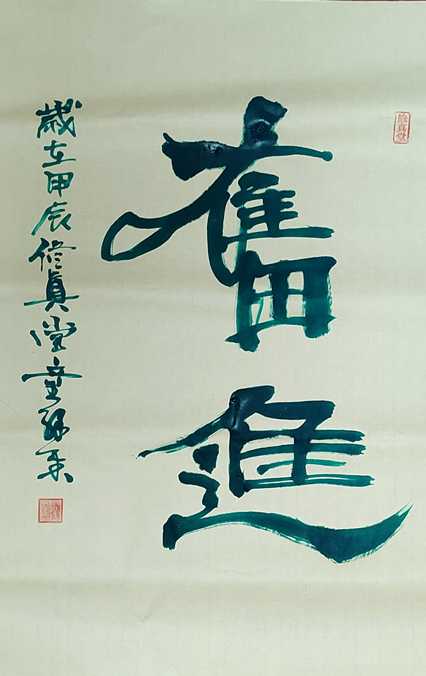 奮進
歲在甲辰修真堂童